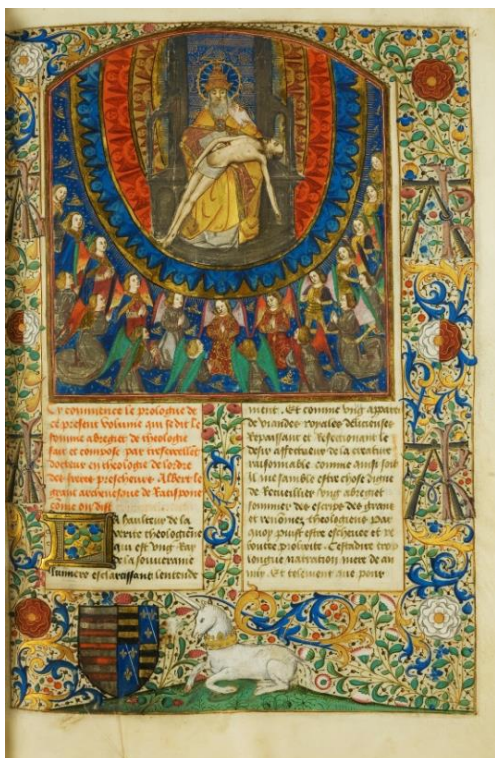 Cy commence le prologue de
ce present volume qui se dit le
somme abregiet de theologie
fait et compose par tresexcellent
docteur en theologie de lordre
des freres prescheurs Albert le
grant archevesque de Ratispone
come on dist
La haulteur de la
verite theologiene
qui est ung Ray
de la souveraine
lumiere esclarcissant lentende
ment. Et comme ung appareil
de viandes royales delicieuses
Repaissant et Refectionant le
desir affectueux de la creature
raisonnable comme ainsi soit
il me samble estre chose digne
de Recueillier ung abregiet
sommier des escrips des grans
et renomez theologiens par
quoy puist estre eschevee et re
boutee prolixite. Cestadire trop
longue narration mere de an
nuy. Et telement que pour